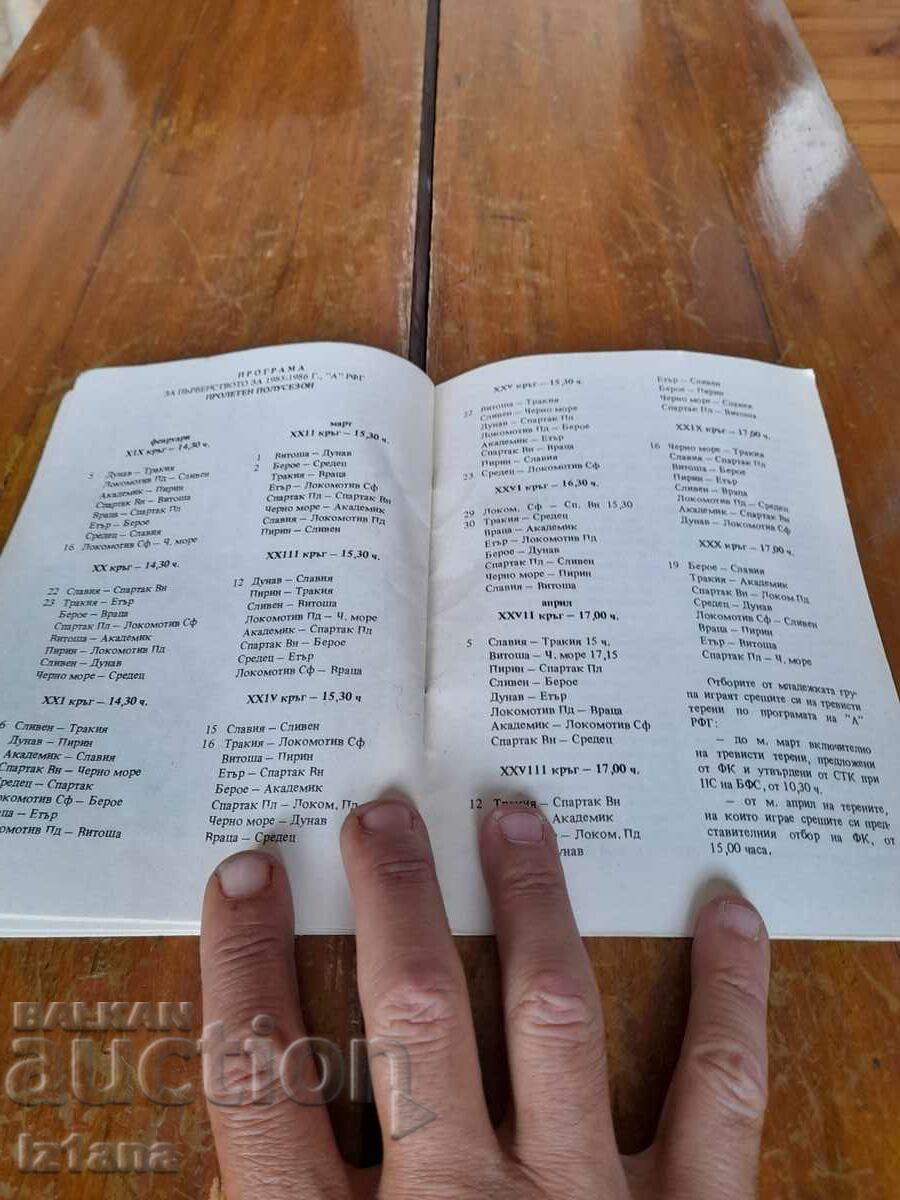 ПРОГРАМА
ЗА ПЪРВЕНСТВОТО ЗА 1985-1986 Г., "А" РФГ
ПРОЛЕТЕН ПОЛУСЕЗОН
февруари
XIX кръг — 14,30 ч.
5 Дунав — Тракия
Локомотив Пд — Сливен
Академик — Пирин
Спартак Вн — Витоша
Враца — Спартак Пл
Етър — Берое
Средец — Славия
16 Локомотив Сф — Ч. море
XX кръг — 14,30 ч.
22 Славия — Спартак Вн
23 Тракия — Етър
Берое — Враца
Спартак Пл — Локомотив Сф
Витоша — Академик
Пирин — Локомотив Пд
Сливен — Дунав
Черно море — Средец
XXI кръг — 14,30 ч.
6 Сливен — Тракия
Дунав — Пирин
Академик — Славия
Спартак Вн — Черно море
Средец — Спартак
Локомотив Сф — Берое
Враца — Етър
Локомотив Пд — Витоша
март
XXII кръг — 15,30 ч.
1 Витоша — Дунав
2 Берое — Средец
Тракия — Враца
Етър — Локомотив Сф
Спартак Пл — Спартак Вн
Черно море — Академик
Славия — Локомотив Пд
Пирин — Сливен
XXIII кръг — 15,30 ч.
12 Дунав — Славия
Пирин — Тракия
Сливен — Витоша
Локомотив Пд — Ч. море
Академик — Спартак Пл
Спартак Вн — Берое
Средец — Етър
Локомотив Сф — Враца
XXIV кръг — 15,30 ч
15 Славия — Сливен
16 Тракия — Локомотив Сф
Витоша — Пирин
Етър — Спартак Вн
Берое — Академик
Спартак Пл — Локом. Пд
Черно море — Дунав
Враца — Средец
XXV кръг — 15,30 ч.
22 Витоша — Тракия
Сливен — Черно море
Дунав — Спартак Пл
Локомотив Пд — Берое
Академик — Етър
Спартак Вн — Враца
Пирин — Славия
23 Средец — Локомотив Сф
XXVI кръг — 16,30 ч.
29 Локом. Сф — Сп. Вн 15,30
30 Тракия — Средец
Враца — Академик
Етър — Локомотив Пд
Берое — Дунав
Спартак Пл — Сливен
Черно море — Пирин
Славия — Витоша
април
XXVII кръг — 17,00 ч.
5 Славия — Тракия 15 ч.
Витоша — Ч. море 17,15
Пирин — Спартак Пл
Сливен — Берое
Дунав — Етър
Локомотив Пд — Враца
Академик — Локомотив Сф
Спартак Вн — Средец
XXVIII кръг — 17,00 ч.
12 Тракия — Спартак Вн
Академик
— Локом. Пд
Дунав
Етър — Сливен
Берое — Пирин
Черно море — Славия
Спартак Пд — Витоша
XXIX кръг — 17,00 ч.
16 Черно море — Тракия
Славия — Спартак Пл
Витоша — Берое
Пирин — Етър
Сливен — Враца
Локомотив Пд — Средец
Академик — Спартак Вн
Дунав — Локомотив Сф
XXX кръг — 17,00 ч.
19 Берое — Славия
Тракия — Академик
Спартак Вн — Локом Пд
Средец — Дунав
Локомотив Сф — Сливен
Враца — Пирин
Етър — Витоша
Спартак Пл — Ч. море
Отборите от младежката гру-
па играят срещите си на тревисти
терени по програмата на "А"
РФГ:
— до м. март включително
на тревисти терени, предложени
от ФК и утвърдени от СТК при
ЦС на БФС, от 10,30 ч.
— от м. април на терените,
на които играе срещите си пред-
ставителния отбор на ФК, от
15,00 часа.
BALKAN
auction
iz1ana